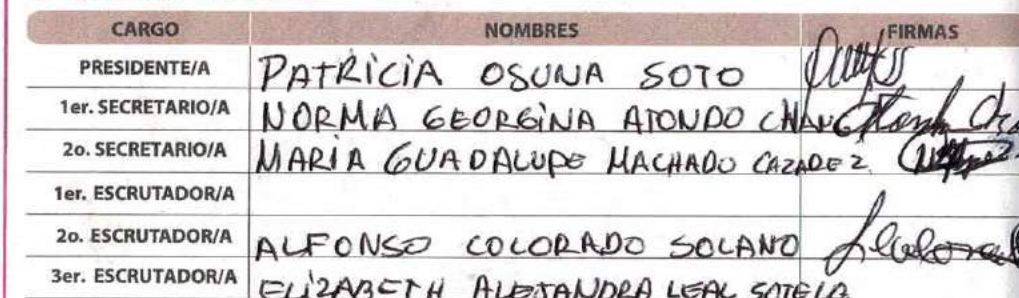 CARGO NOMBRES FIRMAS
PRESIDENTE/A PATRICIA OSUNA SOTO
1er. SECRETARIO/A NORMA GEORGINA ATONDO CHANG
2o. SECRETARIO/A MARIA GUADALUPE MACHADO CAZADEZ
1er. ESCRUTADOR/A
2o. ESCRUTADOR/A ALFONSO COLORADO SOLANO
3er. ESCRUTADOR/A ELIZABETH ALEJANDRA LEAL SOTELO